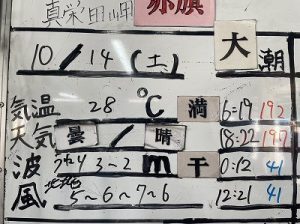 真栄田岬 赤旗
10/14(土) 大潮
気温 28℃ 満 6:19 192
天気 曇/晴 18:22 197
波 うねり 3~2m 干 0:12 41
風 北北東 5~6~7~6 12:21 41